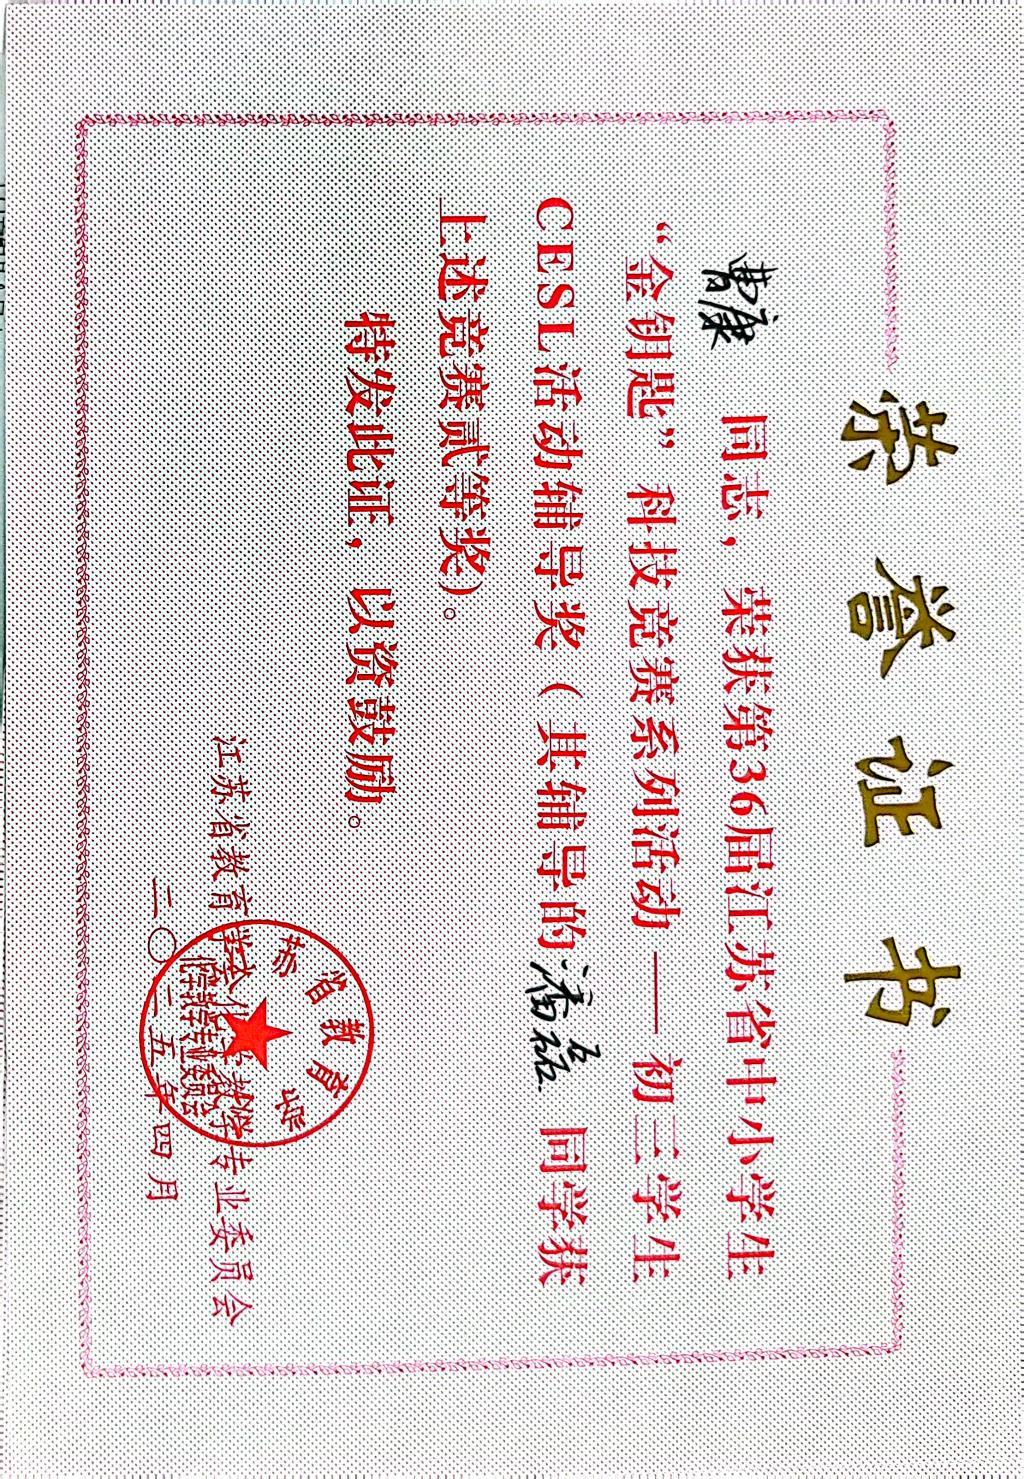 荣誉证书
曹康 同志，荣获第36届江苏省中小学生
“金钥匙”科技竞赛系列活动——初三学生
CESL活动辅导奖（其辅导的潘磊 同学获
上述竞赛贰等奖）。
特发此证，以资鼓励。
江苏省教育学会化学教学专业委员会
二〇二五年四月
苏省教育
化学教学专业委员会